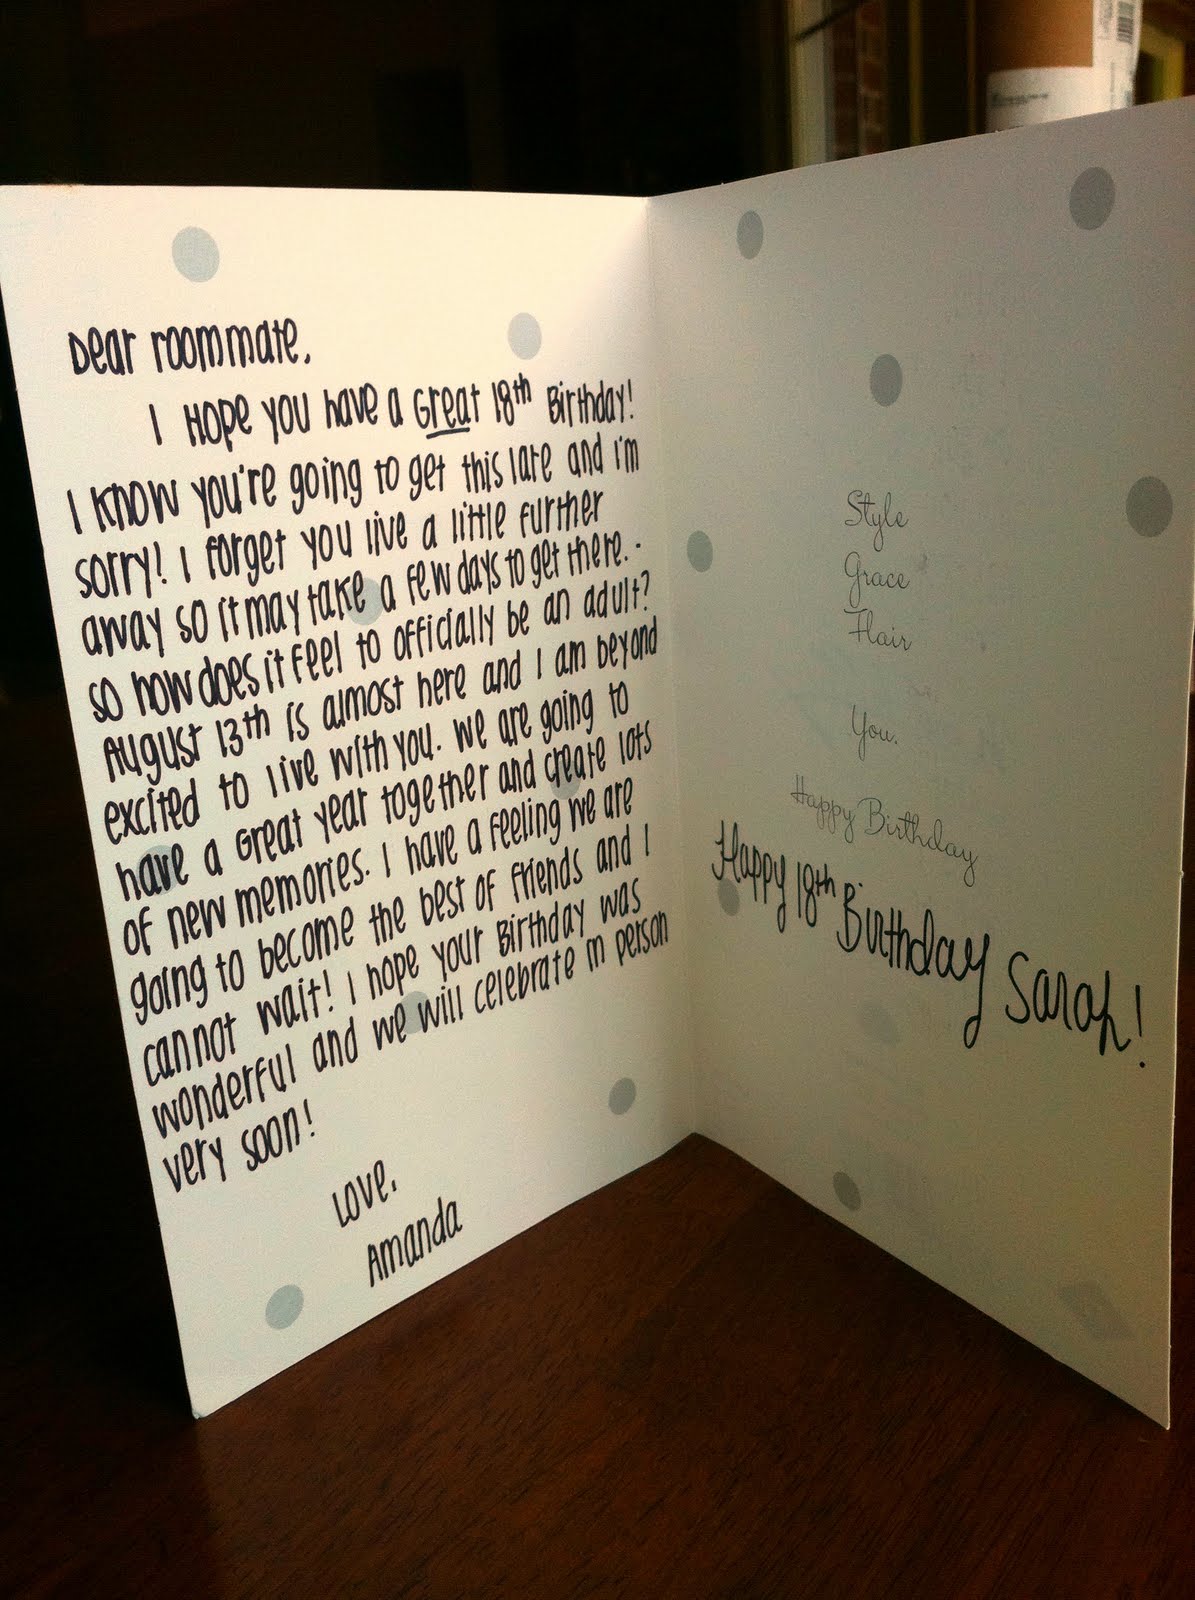 Dear roommate,
I Hope you have a Great 18th Birthday!
I know you're going to get this late and I'm
sorry! I forget you live a little further
away so it may take a few days to get there. -
so how does it feel to officially be an adult?
August 13th is almost here and I am beyond
excited to live with you. We are going to
have a Great year together and create lots
of new memories. I have a feeling we are
going to become the best of friends and I
cannot wait! I hope your Birthday was
wonderful and we will celebrate in person
very soon!
Love,
Amanda
Style
Grace
Flair
You.
Happy Birthday
Happy 18th Birthday Sarah!